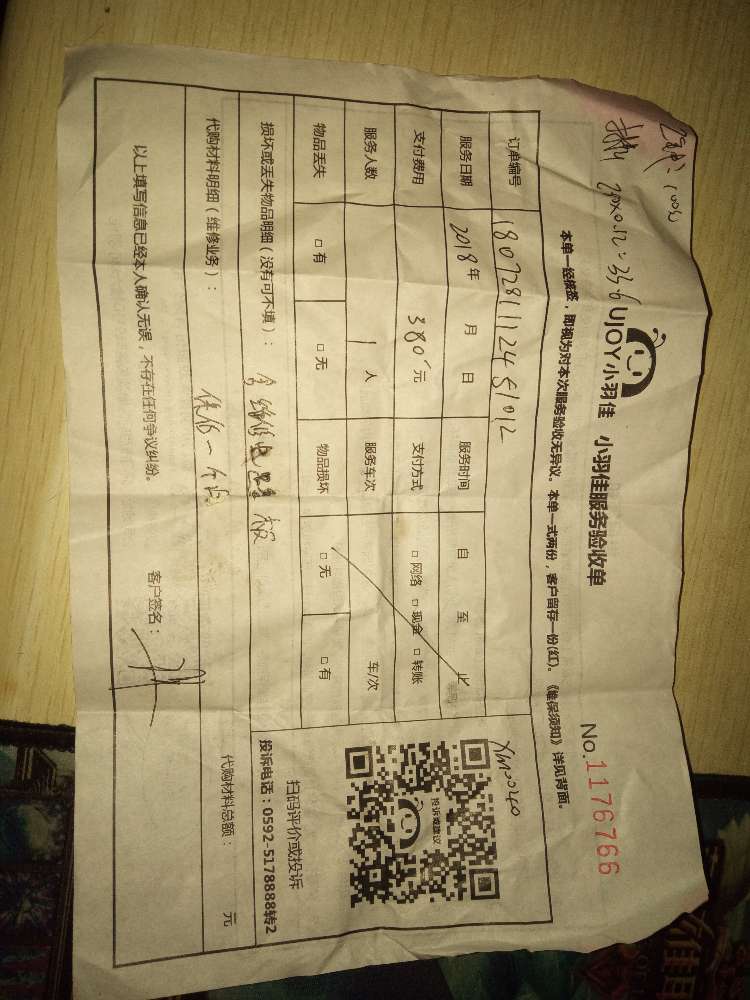 100%
280×0.12=33.6
UJOY小羽佳 小羽佳服务验收单
No.1176766
本单一经核签，即视为对本次服务验收无异议。本单一式两份，客户留存一份(红)。《维保须知》详见背面。
订单编号 1807281112451012
服务日期 2018年 月 日 服务时间 自 至 止
支付费用 380元 支付方式 □网络 □现金 □转账
服务人数 1人 服务车次 车/次
物品丢失 □有 □无 物品损坏 □无 □有
XM00240
投诉或建议
扫码评价或投诉
投诉电话：0592-5178888转2
损坏或丢失物品明细（没有可不填）： 维修电路板
代购材料明细（维修业务）： 保修一个月
代购材料总额： 元
以上填写信息已经本人确认无误，不存在任何争议纠纷。
客户签名：